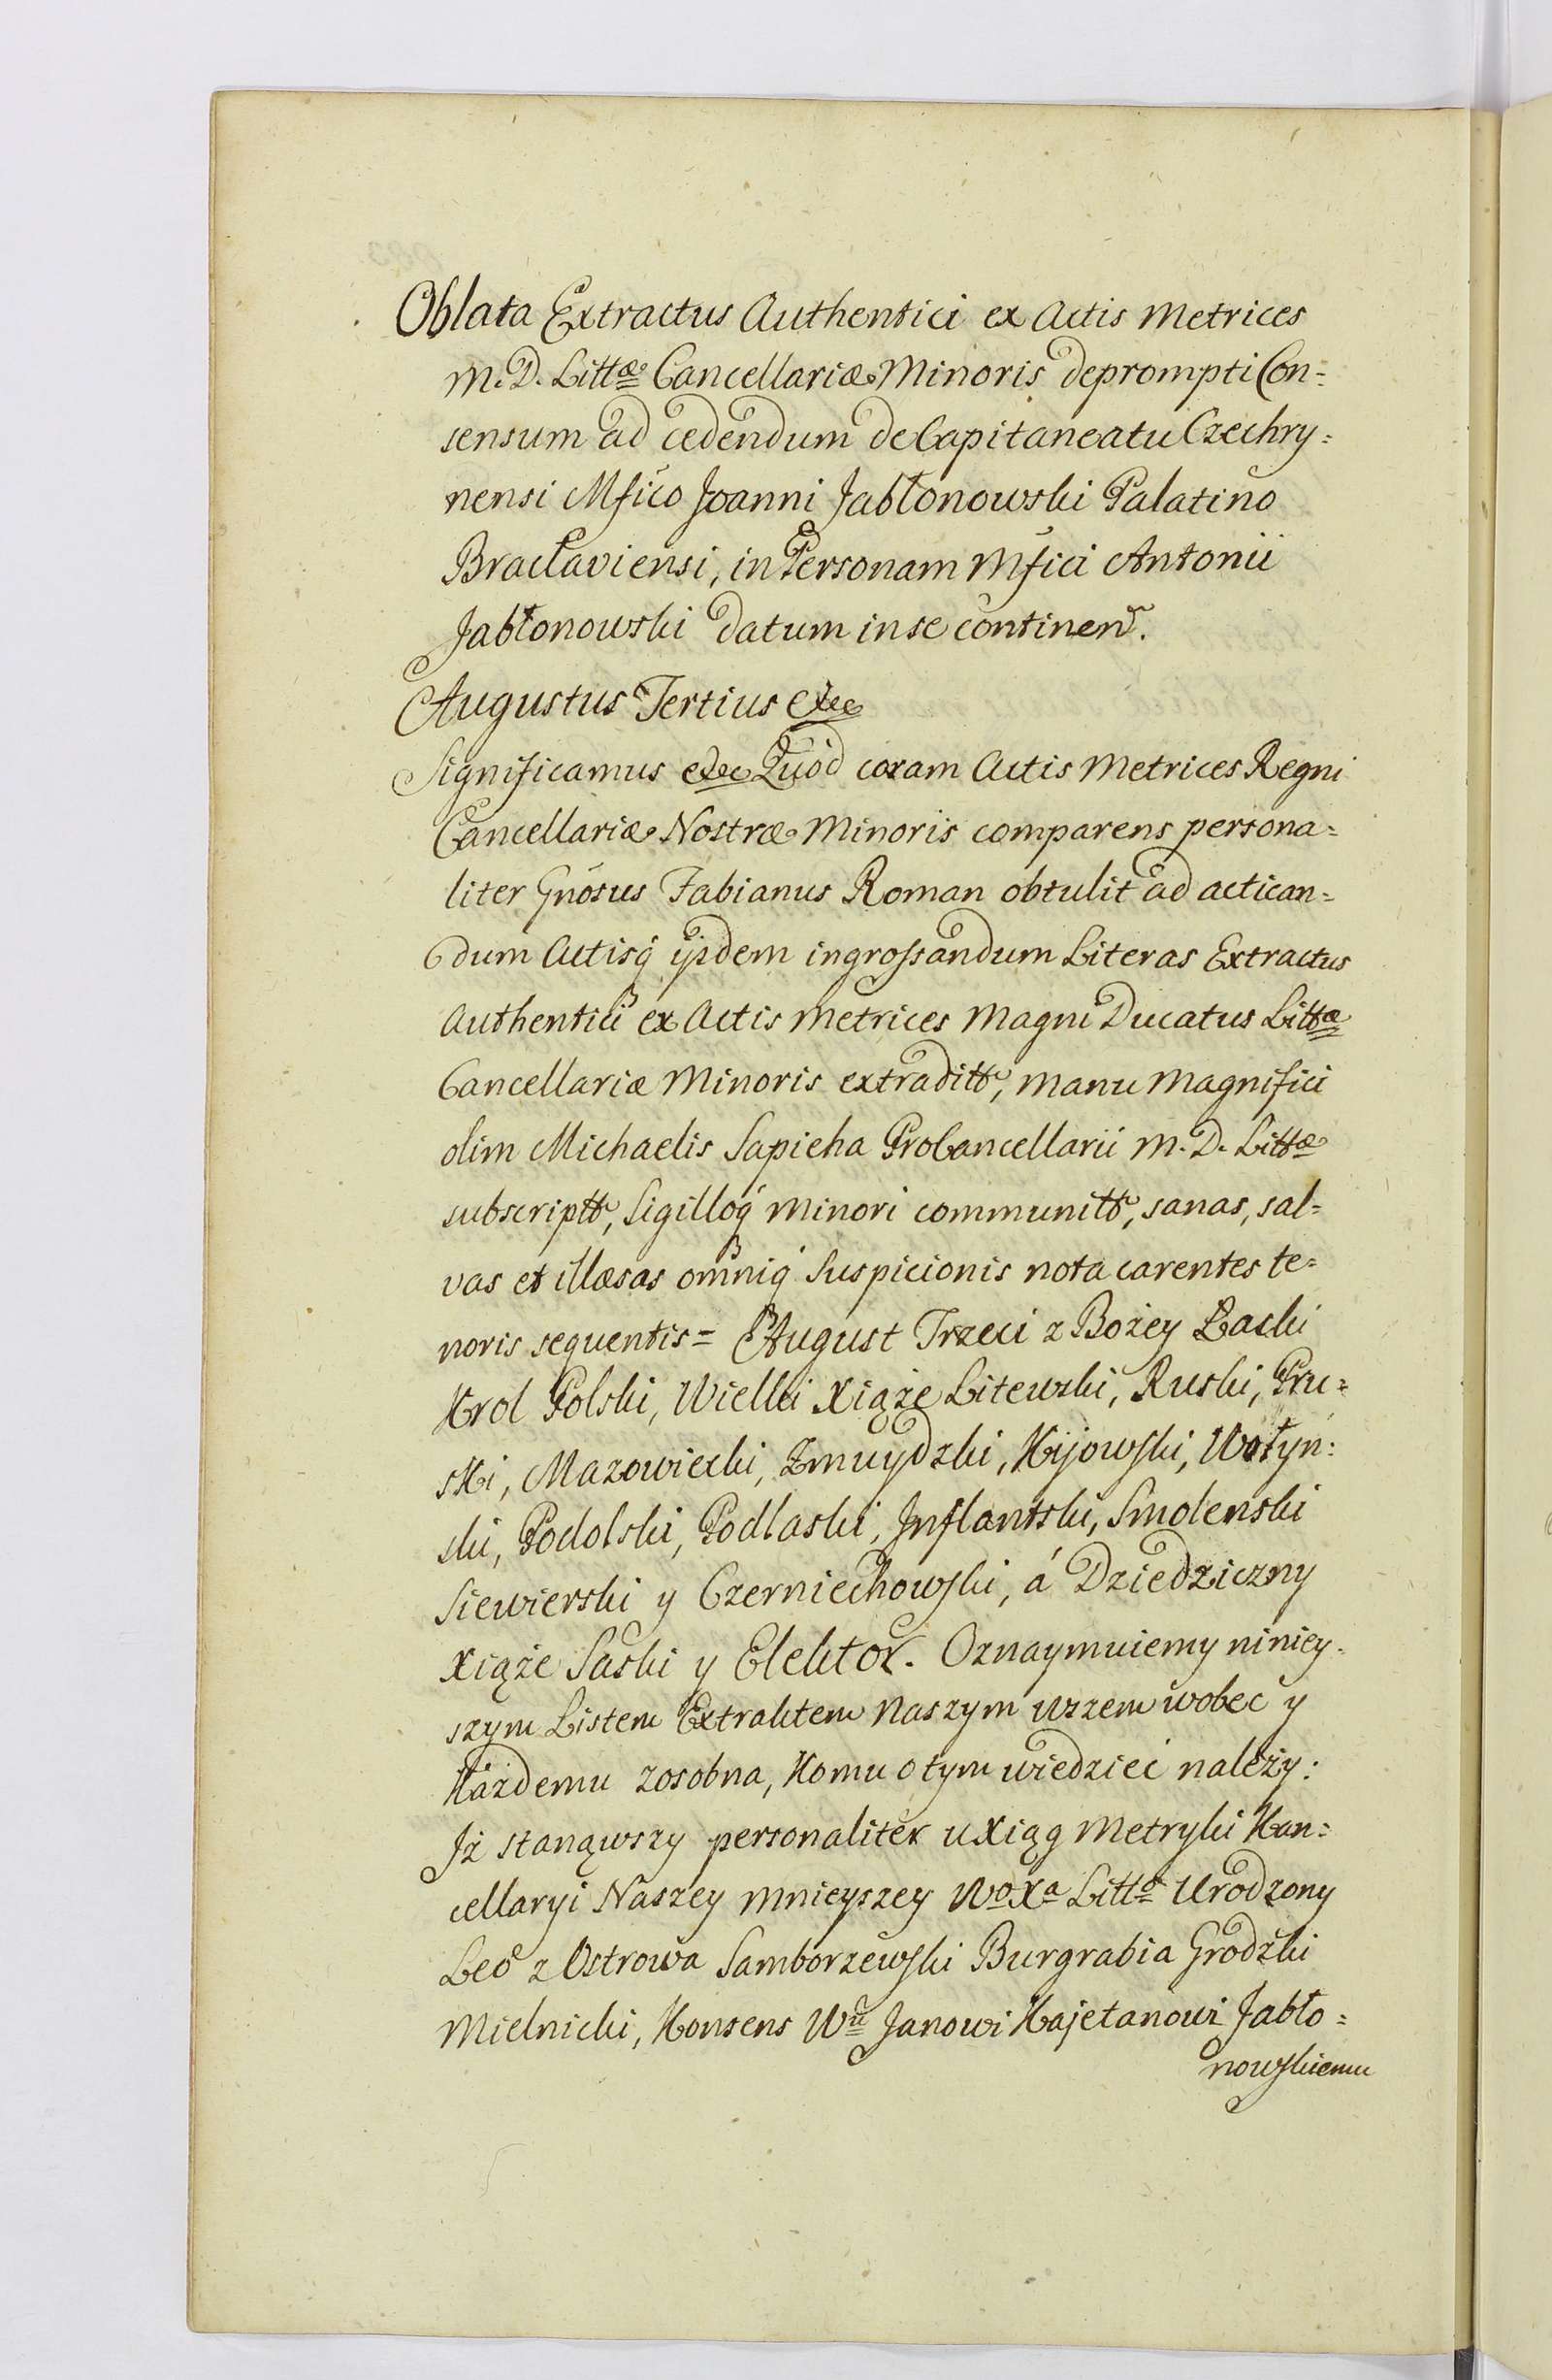 Oblata Extractus Authentici ex Actis Metrices
M. D. Littæ Cancellariæ Minoris deprompti Con=
sensum ad cedendum de Capitaneatu Czechry=
nensi Mfico Joanni Jabłonowski Palatino
Bracłaviensi, in Personam Mfici Antonii
Jabłonowski datum in se continen.
Augustus Tertius etc
Significamus etc Quod coram Actis Metrices Regni
Cancellariæ Nostræ Minoris comparens persona=
liter Gnosus Fabianus Roman obtulit ad actican=
dum Actisq ijsdem ingrossandum Literas Extractus
Authentici ex Actis Metrices Magni Ducatus Littæ
Cancellariæ Minoris extraditt, manu Magnifici
olim Michaelis Sapieha ProCancellarii M. D. Littæ
subscriptt, Sigilloq Minori communitt, sanas, sal=
vas et illæsas omniq Suspicionis nota carentes te=
noris sequentis = August Trzeci z Bożey Łaski
Krol Polski, Wielki Xiąże Litewski, Ruski, Pru=
ski, Mazowiecki, Zmuydzki, Kijowski, Wołyn:
ski, Podolski, Podlaski, Inflantski, Smolenski
Siewierski y Czerniechowski, á Dziedziczny
Xiąże Saski y Elektor. Oznaymuiemy niniey=
szym Listem Extraktem Naszym wszem wobec y
Każdemu zosobna, Komu o tym wiedzieć należy:
Iż stanąwszy personaliter u Xiąg Metryki Kan=
cellaryi Naszey Mnieyszey Wo Xa Litto Urodzony
Leo z Ostrowa Samborzewski Burgrabia Grodzki
Mielnicki, Konsens Wu Janowi Kajetanowi Jabło=
nowskiemu